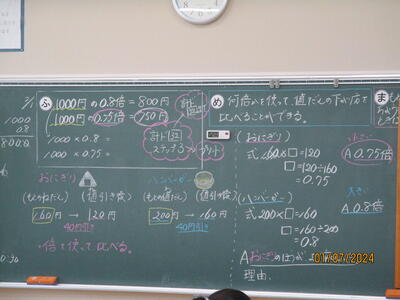 ふ 1000円の0.8倍=800円
1000円の0.75倍=750円
1000×0.8=
1000×0.75=
2/1
1000
0.8
800.0
計ド
計ド 21
ステップ3
プリント
め 何倍かを使って、値だんの下がり方を
比べることができる。
ま
(おにぎり)
式 160×□=120
□=120÷160
=0.75
A 0.75倍
(ハンバーガー)
式 200×□=160
□=160÷200
=0.8
大きい
A 0.8倍
A おにぎりのほうが
理由、
おにぎり
(もとのねだん) (値引き後)
160円→120円
40円引き
ハンバーガー
(もとの値だん) (値引き後)
200円→160円
40円引き
・倍を使って比べる。
01/07/2024